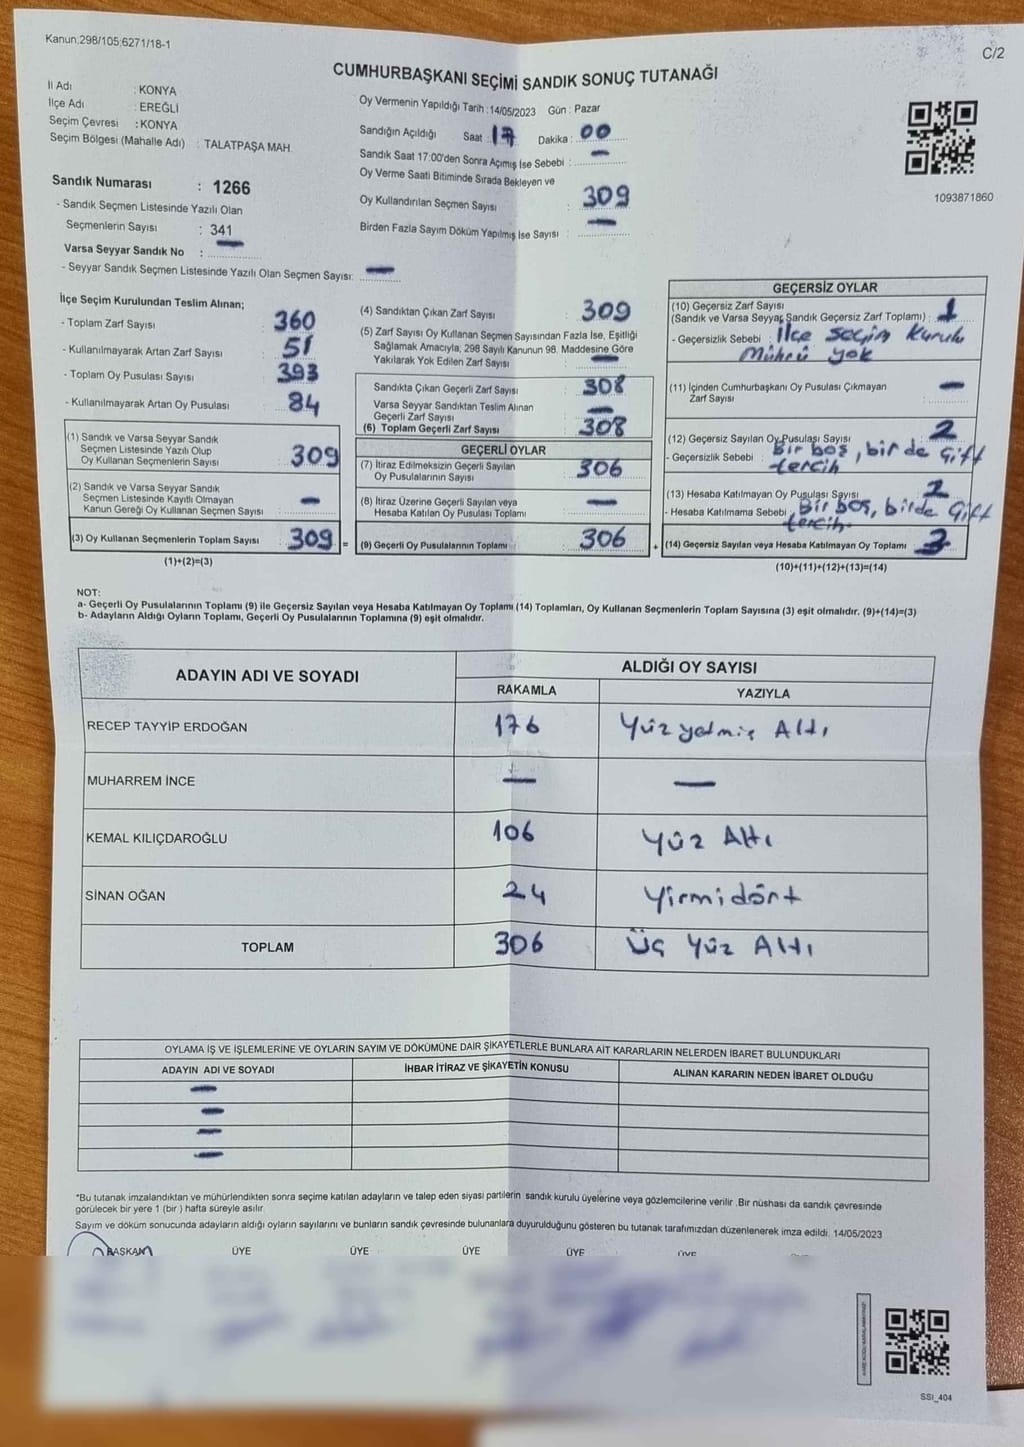 Kanun,298/105;6271/18-1
C/2
CUMHURBAŞKANI SEÇİMİ SANDIK SONUÇ TUTANAĞI
İl Adı : KONYA
İlçe Adı : EREĞLİ
Seçim Çevresi : KONYA
Seçim Bölgesi (Mahalle Adı) : TALATPAŞA MAH.
Sandık Numarası : 1266
- Sandık Seçmen Listesinde Yazılı Olan
Seçmenlerin Sayısı : 341
Varsa Seyyar Sandık No : —
- Seyyar Sandık Seçmen Listesinde Yazılı Olan Seçmen Sayısı: —
Oy Vermenin Yapıldığı Tarih : 14/05/2023 Gün : Pazar
Sandığın Açıldığı Saat : 17 Dakika : 00
Sandık Saat 17:00'den Sonra Açımış İse Sebebi : —
Oy Verme Saati Bitiminde Sırada Bekleyen ve
Oy Kullandırılan Seçmen Sayısı : 309
Birden Fazla Sayım Döküm Yapılmış İse Sayısı : —
1093871860
İlçe Seçim Kurulundan Teslim Alınan;
- Toplam Zarf Sayısı : 360
- Kullanılmayarak Artan Zarf Sayısı : 51
- Toplam Oy Pusulası Sayısı : 393
- Kullanılmayarak Artan Oy Pusulası : 84
(1) Sandık ve Varsa Seyyar Sandık
Seçmen Listesinde Yazılı Olup
Oy Kullanan Seçmenlerin Sayısı : 309
(2) Sandık ve Varsa Seyyar Sandık
Seçmen Listesinde Kayıtlı Olmayan
Kanun Gereği Oy Kullanan Seçmen Sayısı : —
(3) Oy Kullanan Seçmenlerin Toplam Sayısı : 309 =
(1)+(2)=(3)
(4) Sandıktan Çıkan Zarf Sayısı : 309
(5) Zarf Sayısı Oy Kullanan Seçmen Sayısından Fazla İse, Eşitliği
Sağlamak Amacıyla; 298 Sayılı Kanunun 98. Maddesine Göre
Yakılarak Yok Edilen Zarf Sayısı : —
Sandıkta Çıkan Geçerli Zarf Sayısı : 308
Varsa Seyyar Sandıktan Teslim Alınan
Geçerli Zarf Sayısı : —
(6) Toplam Geçerli Zarf Sayısı : 308
GEÇERLİ OYLAR
(7) İtiraz Edilmeksizin Geçerli Sayılan
Oy Pusulalarının Sayısı : 306
(8) İtiraz Üzerine Geçerli Sayılan veya
Hesaba Katılan Oy Pusulası Toplamı : —
(9) Geçerli Oy Pusulalarının Toplamı : 306 +
GEÇERSİZ OYLAR
(10) Geçersiz Zarf Sayısı
(Sandık ve Varsa Seyyar Sandık Geçersiz Zarf Toplamı) : 1
- Geçersizlik Sebebi : İlçe Seçim Kurulu
Mührü yok
(11) İçinden Cumhurbaşkanı Oy Pusulası Çıkmayan
Zarf Sayısı : —
(12) Geçersiz Sayılan Oy Pusulası Sayısı : 2
- Geçersizlik Sebebi : Bir boş, bir de Çift
tercih
(13) Hesaba Katılmayan Oy Pusulası Sayısı : 2
- Hesaba Katılmama Sebebi : Bir boş, birde Çift
tercih
(14) Geçersiz Sayılan veya Hesaba Katılmayan Oy Toplamı : 3
(10)+(11)+(12)+(13)=(14)
NOT:
a- Geçerli Oy Pusulalarının Toplamı (9) ile Geçersiz Sayılan veya Hesaba Katılmayan Oy Toplamı (14) Toplamları, Oy Kullanan Seçmenlerin Toplam Sayısına (3) eşit olmalıdır. (9)+(14)=(3)
b- Adayların Aldığı Oyların Toplamı, Geçerli Oy Pusulalarının Toplamına (9) eşit olmalıdır.
ADAYIN ADI VE SOYADI
ALDIĞI OY SAYISI
RAKAMLA YAZIYLA
RECEP TAYYİP ERDOĞAN 176 Yüz yetmiş Altı
MUHARREM İNCE — —
KEMAL KILIÇDAROĞLU 106 Yüz Altı
SİNAN OĞAN 24 Yirmidört
TOPLAM 306 Üç Yüz Altı
OYLAMA İŞ VE İŞLEMLERİNE VE OYLARIN SAYIM VE DÖKÜMÜNE DAİR ŞİKAYETLERLE BUNLARA AİT KARARLARIN NELERDEN İBARET BULUNDUKLARI
ADAYIN ADI VE SOYADI İHBAR İTİRAZ VE ŞİKAYETİN KONUSU ALINAN KARARIN NEDEN İBARET OLDUĞU
—
—
—
—
*Bu tutanak imzalandıktan ve mühürlendikten sonra seçime katılan adayların ve talep eden siyasi partilerin sandık kurulu üyelerine veya gözlemcilerine verilir .Bir nüshası da sandık çevresinde
görülecek bir yere 1 (bir ) hafta süreyle asılır.
Sayım ve döküm sonucunda adayların aldığı oyların sayılarını ve bunların sandık çevresinde bulunanlara duyurulduğunu gösteren bu tutanak tarafımızdan düzenlenerek imza edildi. 14/05/2023
BAŞKAN ÜYE ÜYE ÜYE ÜYE ÜYE
SSI_404